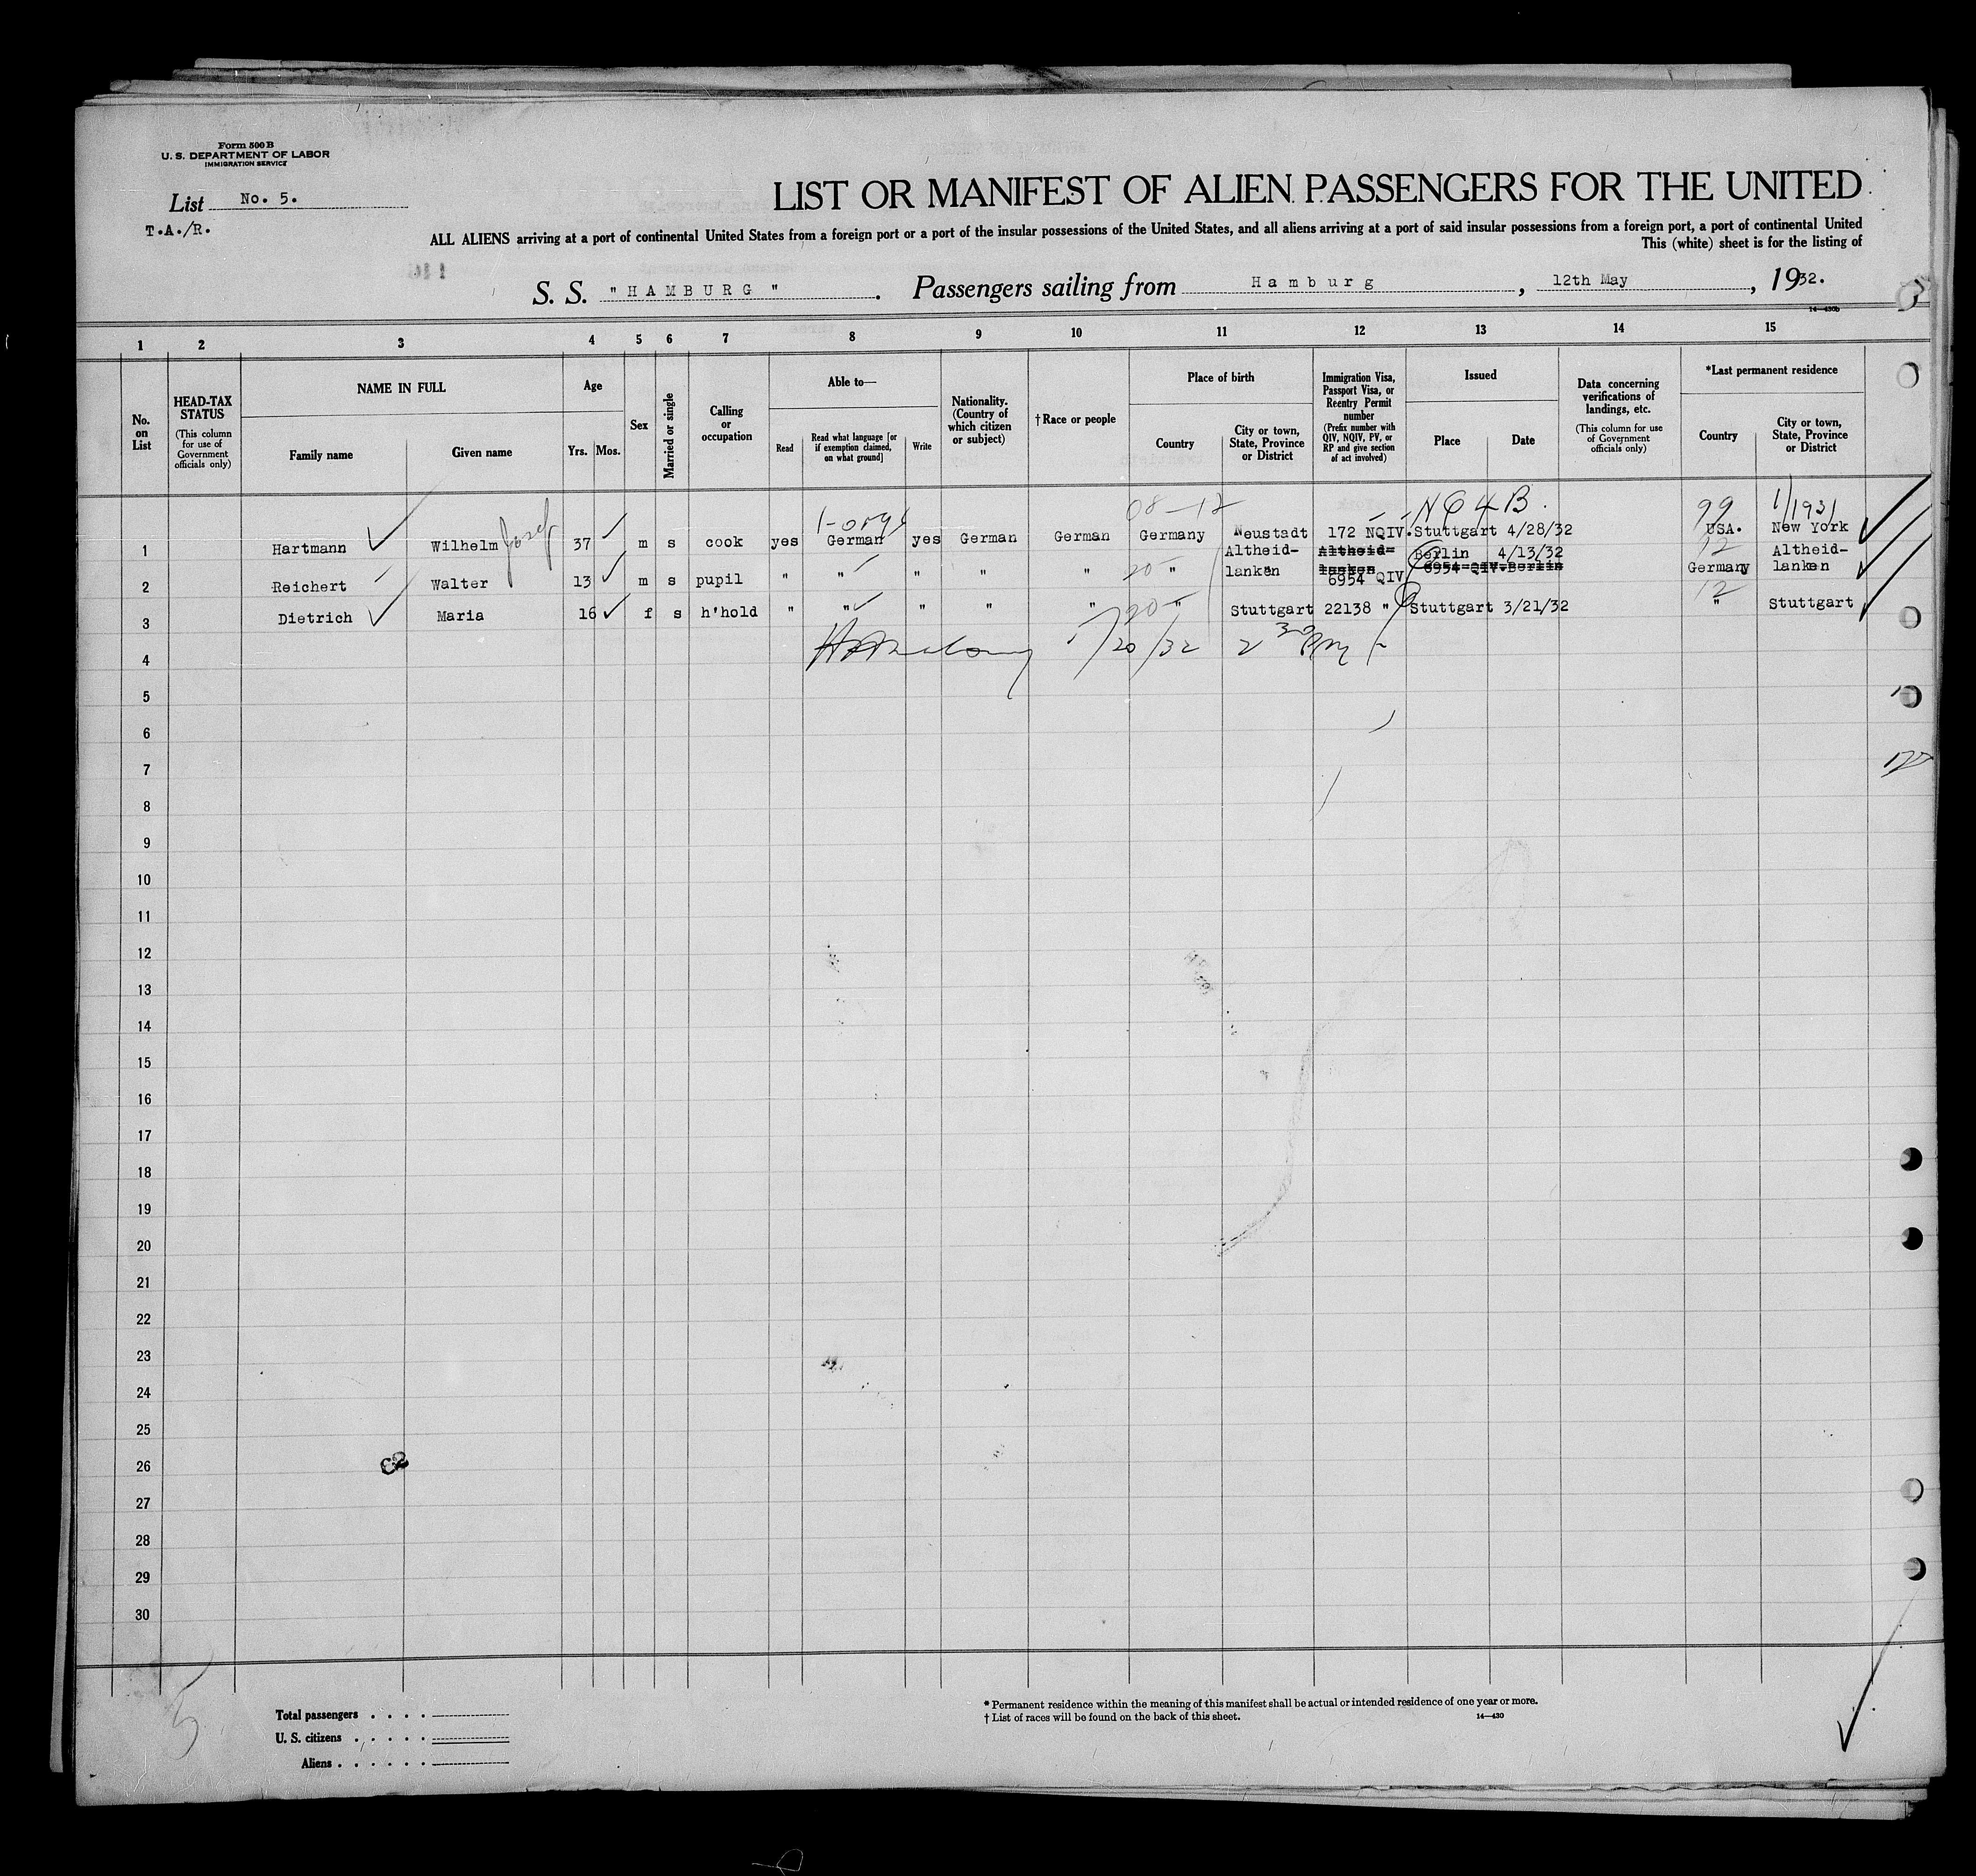 Form 500 B
U. S. DEPARTMENT OF LABOR
IMMIGRATION SERVICE
List No. 5.
T.A./R.
LIST OR MANIFEST OF ALIEN PASSENGERS FOR THE UNITED
ALL ALIENS arriving at a port of continental United States from a foreign port or a port of the insular possessions of the United States, and all aliens arriving at a port of said insular possessions from a foreign port, a port of continental United
This (white) sheet is for the listing of
S. S. "HAMBURG". Passengers sailing from Hamburg, 12th May, 1932.
14—430b
1 2 3 4 5 6 7 8 9 10 11 12 13 14 15
No. on List
HEAD-TAX STATUS (This column for use of Government officials only)
NAME IN FULL
Family name Given name
Age
Yrs. Mos.
Sex
Married or single
Calling or occupation
Able to—
Read Read what language [or if exemption claimed, on what ground] Write
Nationality. (Country of which citizen or subject)
† Race or people
Place of birth
Country City or town, State, Province or District
Immigration Visa, Passport Visa, or Reentry Permit number (Prefix number with QIV, NQIV, PV, or RP and give section of act involved)
Issued
Place Date
Data concerning verifications of landings, etc. (This column for use of Government officials only)
*Last permanent residence
Country City or town, State, Province or District
08-12 N64B. 99 1/1931
1 Hartmann Wilhelm Josef 37 m s cook yes German yes German German Germany Neustadt 172 NQIV. Stuttgart 4/28/32 USA. New York
2 Reichert Walter 13 m s pupil " " " " " 20 " Altheid-lanken Altheid-lanken 6954 QIV Berlin 4/13/32 6954 QIV.Berlin 12 Germany Altheid-lanken
3 Dietrich Maria 16 f s h'hold " " " " " 20 " Stuttgart 22138 " Stuttgart 3/21/32 12 " Stuttgart
4 5/20/32 2 30 PM
5
6
7
8
9
10
11
12
13
14
15
16
17
18
19
20
21
22
23
24
25
26
27
28
29
30
5
Total passengers . . . .
U. S. citizens . . . . .
Aliens . . . . . .
* Permanent residence within the meaning of this manifest shall be actual or intended residence of one year or more.
† List of races will be found on the back of this sheet.
14—430